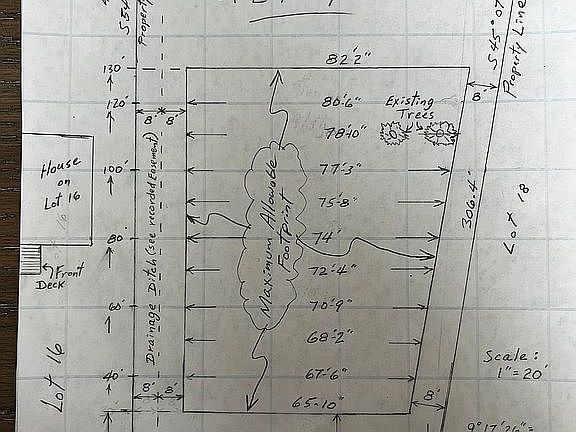 S54°
Property
S 45° 07'
Property Line
130'
120'
100'
80'
60'
40'
82'2"
80'-6"
78'-10"
77'-3"
75'-8"
74'
72'-4"
70'-9"
68'-2"
67'-6"
65-10"
Existing
Trees
8' 8'
8'
House
on
Lot 16
Front
Deck
Lot 16
Drainage Ditch (see recorded Easement)
Maximum Allowable
Footprint
306.4'
Lot 18
Scale:
1"=20'
8' 8'
8'
9°17'26"=